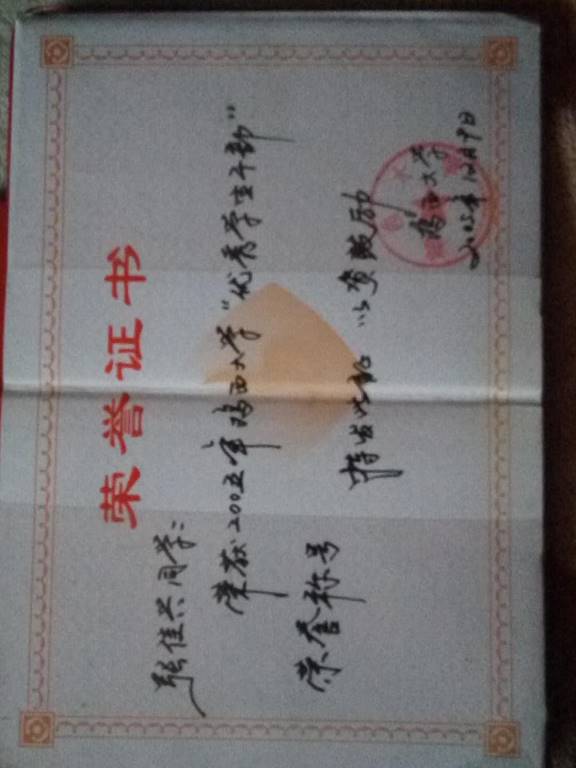 荣誉证书
张佳兴同学：
荣获二00五年鸡西大学“优秀学生干部”
荣誉称号
特发此证 以资鼓励
鸡西大学
二00五年12月9日